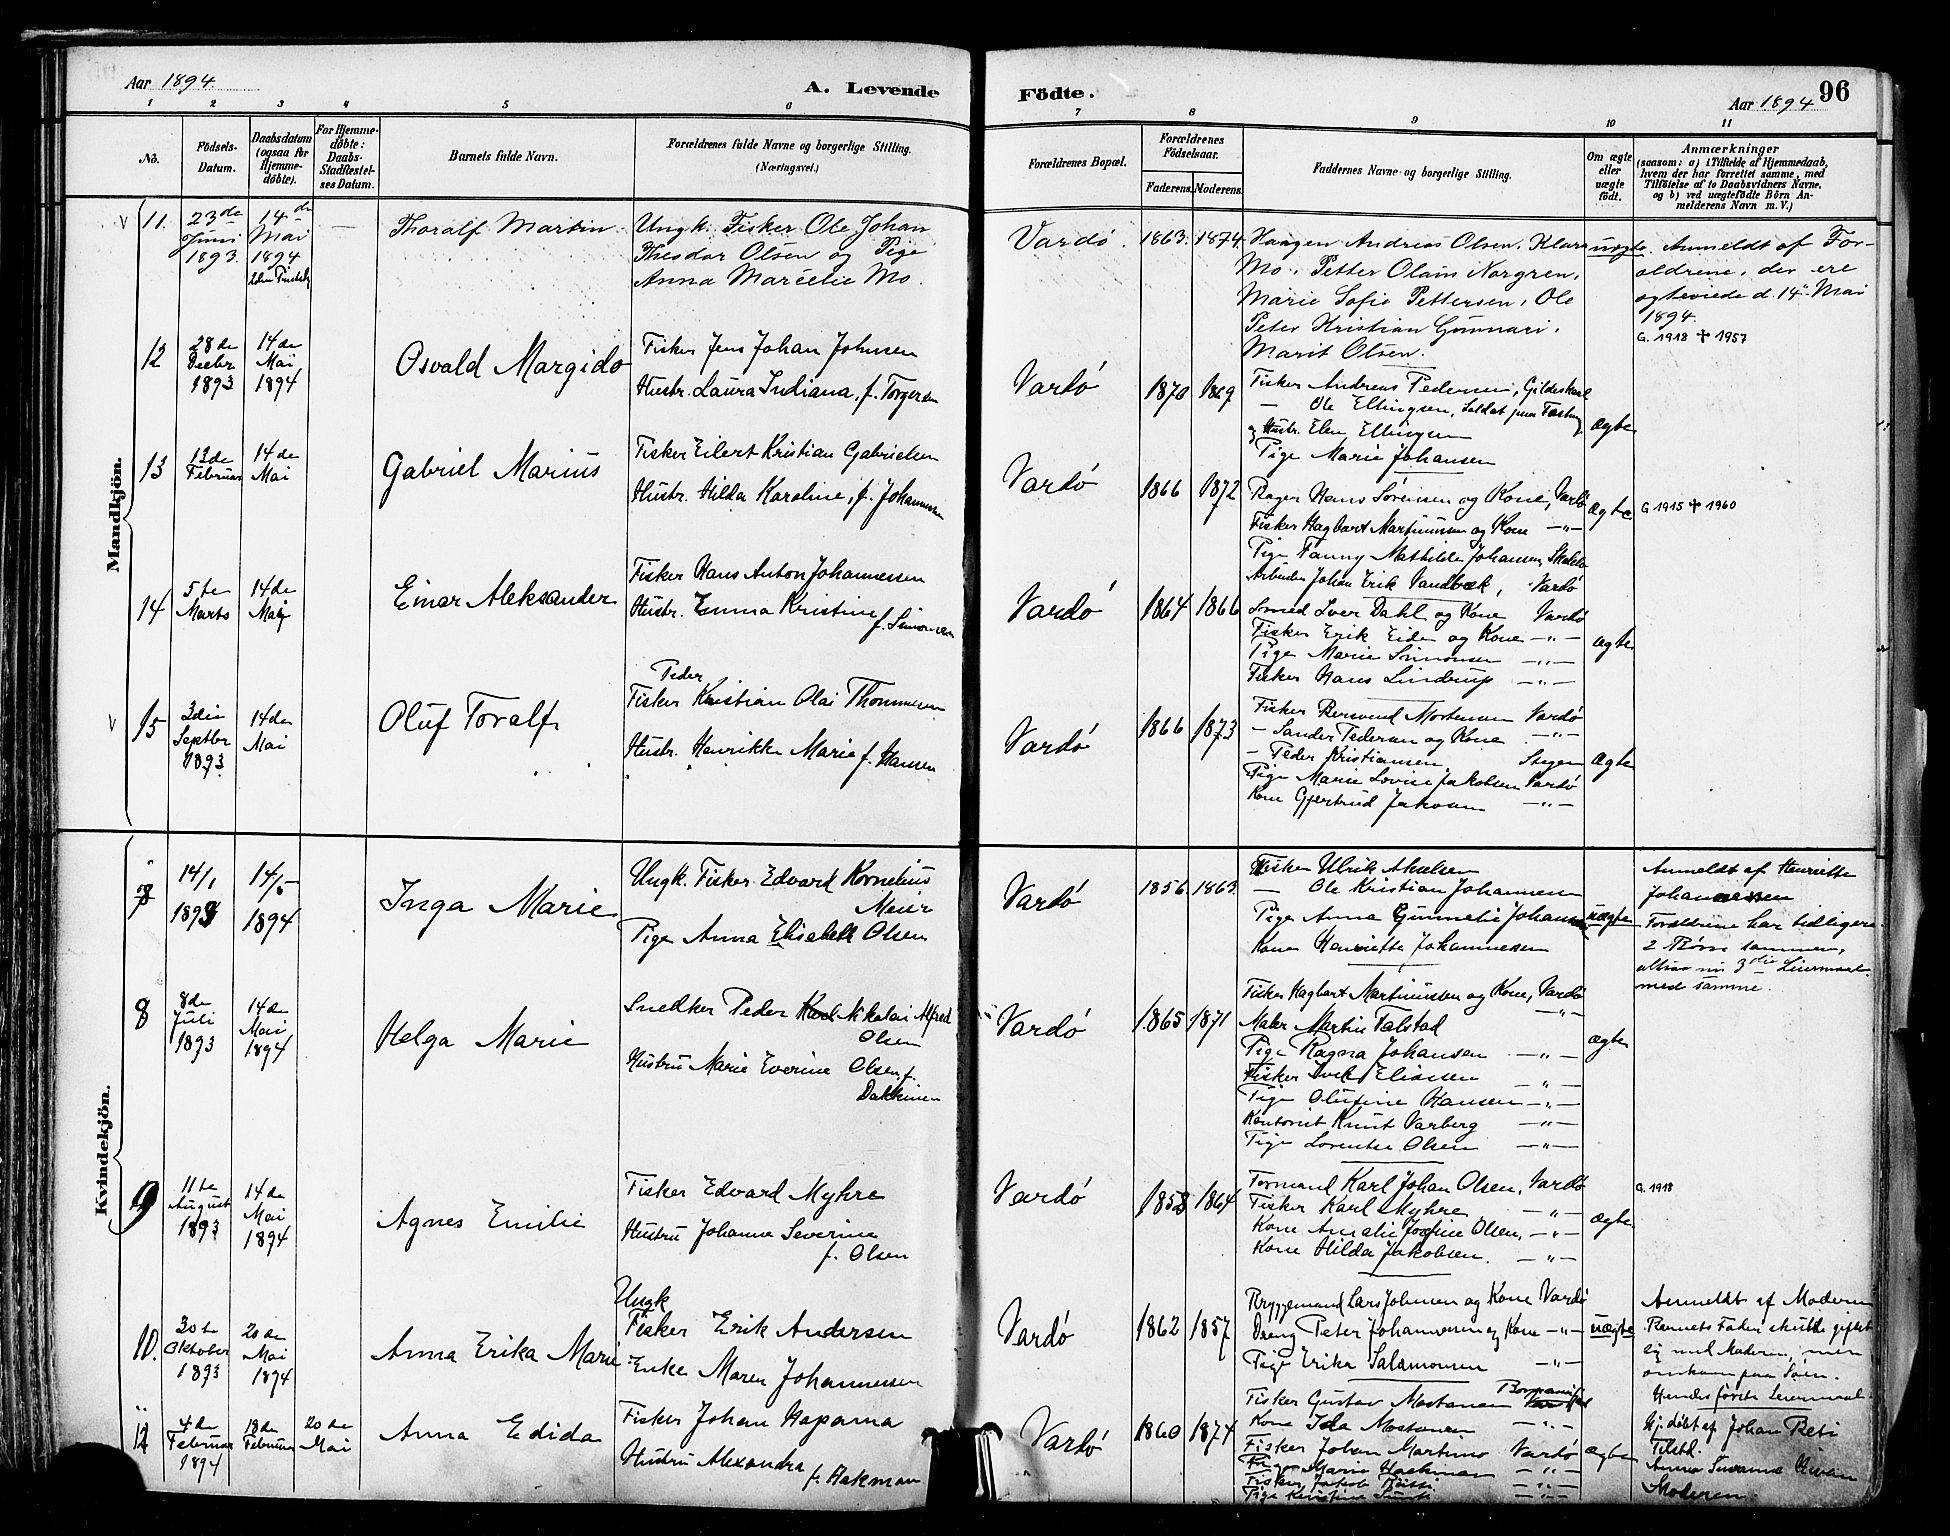 Aar 1894.
A. Levende
Födte.
Aar 1894
96
1 2 3 4 5 6 7 8 9 10 11
No.
Födsels-
Datum.
Daabsdatum
(ogsaa for
Hjemme-
döbte).
For Hjemme-
döbte:
Daabs-
Stadfæstel-
ses Datum.
Barnets fulde Navn.
Forældrenes fulde Navne og borgerlige Stilling.
(Næringsvei.)
Forældrenes Bopæl.
Forældrenes
Födselsaar.
Faderens. Moderens.
Faddernes Navne og borgerlige Stilling.
Om ægte
eller
uægte
födt.
Anmærkninger
(saasom: a) i Tilfælde af Hjemmedaab,
hvem der har forrettet samme, med
Tilföielse af to Daabsvidners Navne,
og b) ved uægtefödte Börn An-
melderens Navn m. V.)
Mandkjön.
11.
23de
Juni
1893.
14de
Mai
1894
Thoralf Martin
Ungk. Fisker Ole Johan
Theodor Olsen og Pige
Anna Marcelie Mo.
Vardö.
1863. 1874.
Haagen Andreas Olsen. Klara
Mo. Petter Olaus Norgren,
Marie Sofie Pettersen, Ole
Peter Kristian Gunnari.
Marit Olsen.
uægte.
Anmeldt af For-
ældrene, der ere
ægteviede d. 14de Mai
1894.
G. 1918 ✝ 1957
12
28de
Decbr
1893
14de
Mai
1894
Osvald Margido
Fisker Jens Johan Johnsen
Hustr. Laura Indiana, f. Torgersen
Vardö
1870 1869
Fisker Andreas Pedersen, Gildeskaal
— Ole Ellingsen, Soldat paa
og Hustr. Elen Ellingsen
Pige Marie Johansen
ægte
13
13de
Februar
14de
Mai
Gabriel Marius
Fisker Eilert Kristian Gabrielsen
Hustr. Hilda Karoline, f. Johannessen
Vardö
1866 1872
Bager Hans Sörensen og Kone, Vardö
Fisker Hagbart Martinussen og Kone —"—
Pige Fanny Mathilde Johansen,
Arbeider Johan Erik Vandbæk, Vardö
ægte
G 1915 ✝ 1960
14
5te
Marts
14de
Mai
Einar Aleksander
Fisker Hans Anton Johannessen
Hustr. Emma Kristine f. Simonsen
Vardö
1864 1866
Smed Iver Dahl og Kone Vardö
Fisker Erik Eide og Kone —"—
Pige Marie Simonsen —"—
Fisker Hans Lindrup —"—
ægte
15
3die
Septbr
1893
14de
Mai
Oluf Toralf
Peder
Fisker Kristian Olai Thommesen
Hustr. Henrikke Marie f. Hansen
Vardö
1866 1873
Fisker Berund Mortensen Vardö
— Sander Pedersen og Kone —"—
— Peder Kristiansen Steigen
Pige Marie Lovise Jakobsen Vardö
Kone Gjertrud —"—
ægte
Kvindekjön.
7
14/1
1893
14/5
1894
Inga Marie
Ungk. Fisker Edvard Kornelius
Pige Anna Elisabeth Olsen
Vardö
1856. 1863.
Fisker Ulrik Akselsen
— Ole Kristian Johannesen
Pige Anna Gunnelie Johansen
Kone Henriette Johannesen
uægte
Anmeldt af Henriette
Johannessen
Forældrene har tidligere
2 Börn sammen,
altsaa nu 3die Leiermaal
med samme.
8
8de
Juli
1893
14de
Mai
1894
Helga Marie
Snedker Peder Karl Nikolai Alfred
Olsen
Hustru Marie Everine Olsen, f.
Vardö
1865 1871
Fisker Hagbart Martinussen og Kone, Vardö
Maler Martin Falstad —"—
Pige Ragna Johansen —"—
Fisker Eliassen —"—
Pige Olufine Hansen —"—
Kontorist Knut Varberg —"—
Pige Lorentse Olsen —"—
ægte
9
11te
August
1893
14de
Mai
1894
Agnes Emilie
Fisker Edvard Myhre
Hustru Johanna Severine
f. Olsen
Vardö
1858 1864
Formand Karl Johan Olsen, Vardö
Fisker Karl Myhre —"—
Kone Amalie Josefine Olsen, —"—
Kone Hilda Jakobsen. —"—
ægte
G. 1918
10.
30te
Oktober
1893
20de
Mai
1894
Anna Erika Marie
Ungk
Fisker Erik Andersen
Enke Maren Johannessen
Vardö
1862 1857
Bryggemand Lars Johnsen og Kone Vardö
Dreng Peter Johannesen og Kone —"—
Pige Erika Salamonsen —"—
uægte
Anmeldt af Moderen
Barnets Fader skulde giftet
sig med Moderen, men
omkom paa Söen.
Hendes förste Leiermaal
12
4de
Februar
1894
18de
Februar
20de
Mai
Anna Edida
Fisker Johan Haparna
Hustru Alexandra
f. Hakman
Vardö
1860 1874
Fisker Gustav Mostanen
Kone Ida Mostanen —"—
Fisker Johan Martino Vardö
Pige Marie Hackman —"—
Fisker Jakob —"—
Pige Kristine —"—
ægte
Hj. döbt af Johan Peti
Tilsted.
Anna Susanna
Moderen.